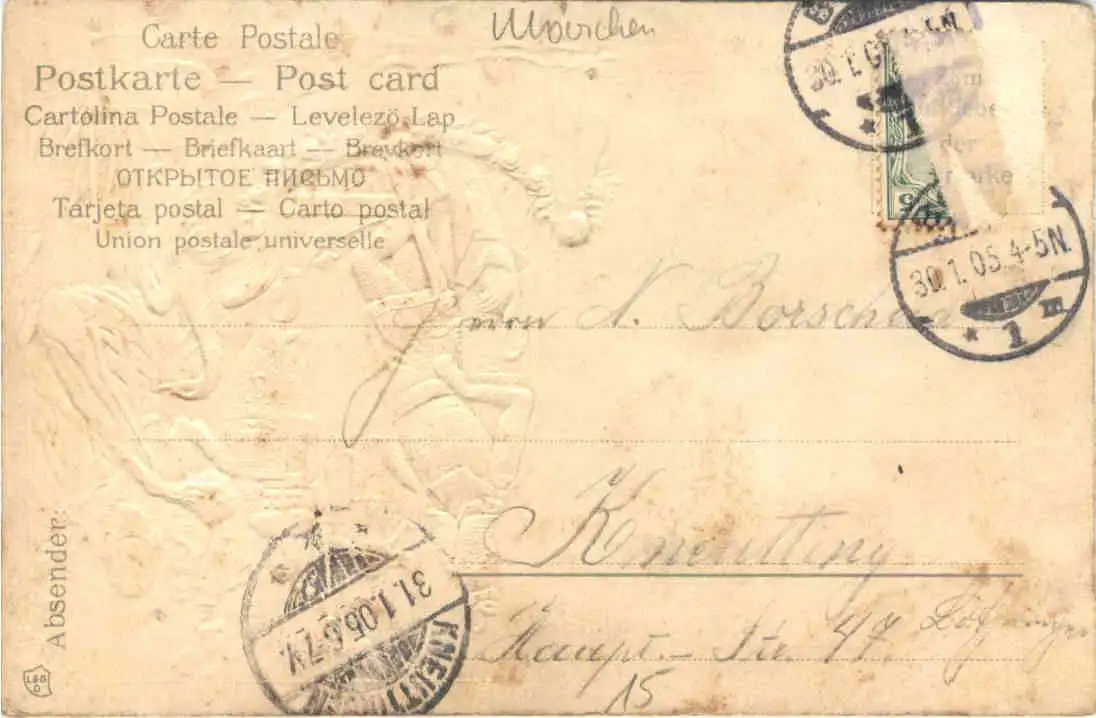 Märchen
Carte Postale
Postkarte — Post card
Cartolina Postale — Levelező Lap
Brefkort — Briefkaart — Brevkort
ОТКРЫТОЕ ПИСЬМО
Tarjeta postal — Carto postal
Union postale universelle
der
30.1.05.4-5N.
* 1 m
Herrn N.
Kneutting
Haupt-Str. 47
15
Absender:
31.1.05.6-7V.
L&P